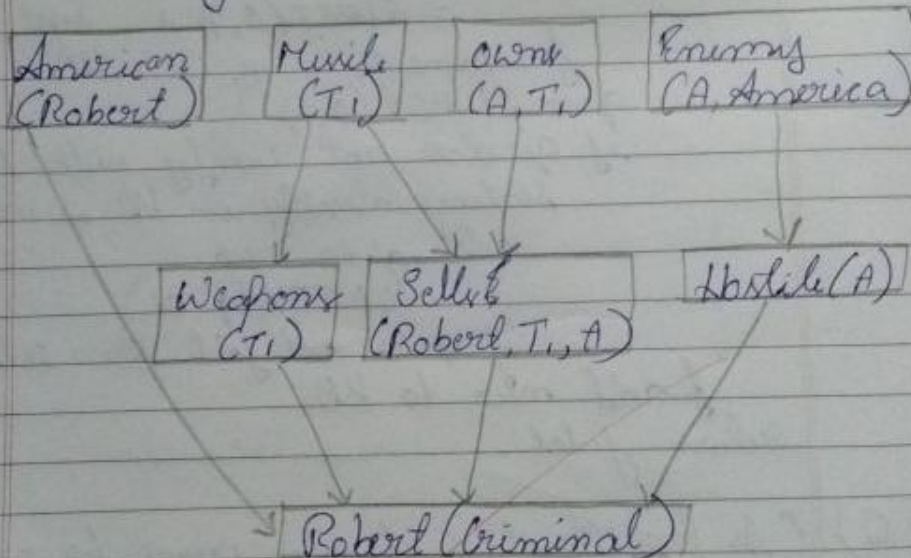 American
(Robert)
Missile
(T1)
Owns
(A, T1)
Enemy
(A, America)
Weapons
(T1)
Sells
(Robert, T1, A)
Hostile (A)
Robert (Criminal)